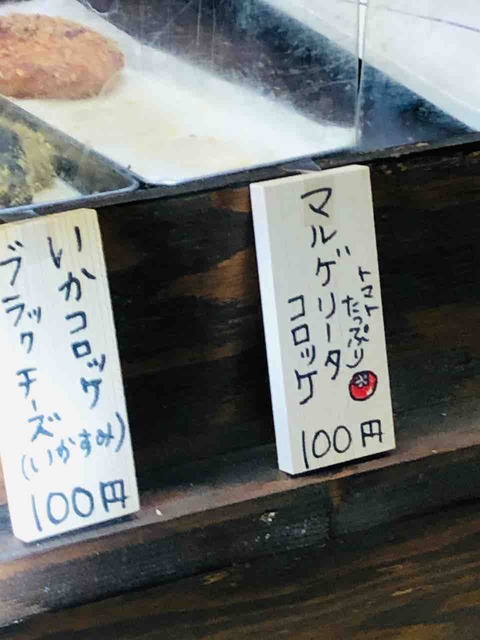 いかコロッケ
ブラックチーズ
(いかすみ)
100円
トマト
たっぷり
マルゲリータ
コロッケ
100円